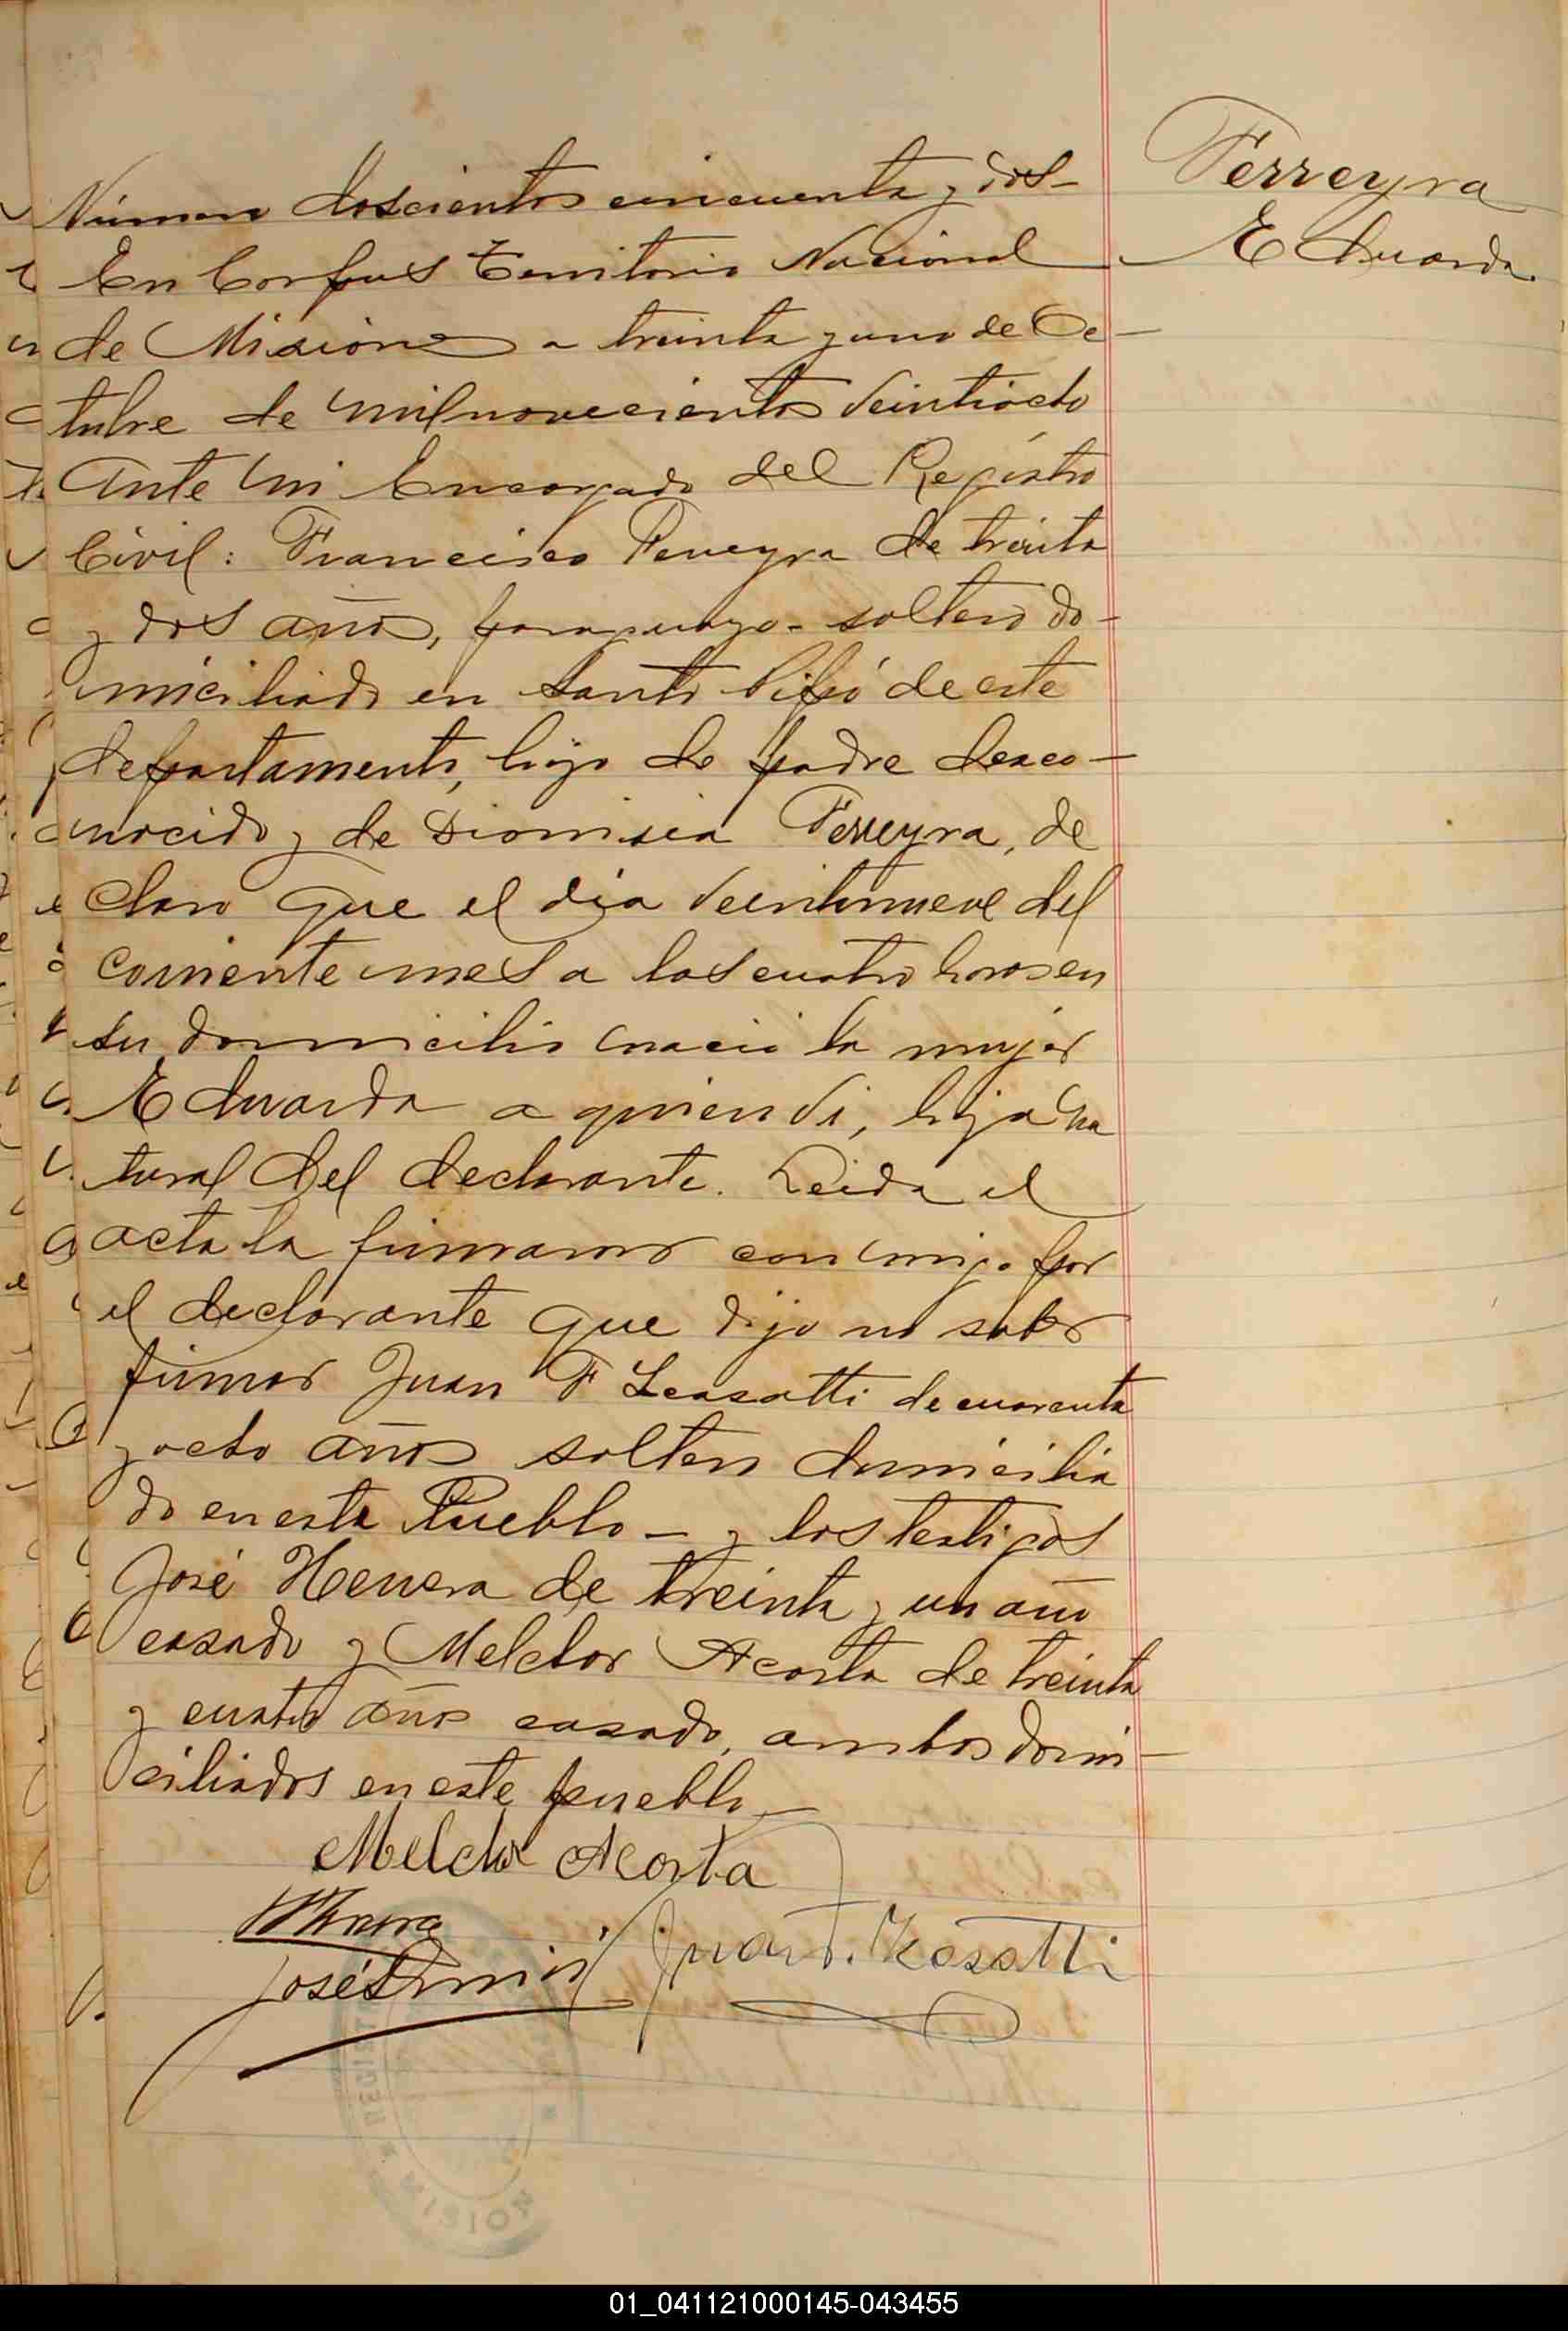 Ferreyra
Eduarda.
Número doscientos cincuenta y dos-
En Corpus Territorio Nacional
de Misiones a treinta y uno de Oc-
tubre de mil novecientos veintiocho
Ante mi Encargado del Registro
Civil: Francisco Ferreyra de treinta
y dos años, paraguayo- soltero do-
miciliado en Santo Pipó de este
departamento, hijo de padre desco-
nocido y de Dionisia Ferreyra, de
claro que el día veintinueve del
corriente mes a las cuatro horas en
su domicilio nació la mujer
Eduarda a quien vi, hija na
tural del declarante. Leida el
acta la firmaron conmigo por
el declarante que dijo no saber
firmar Juan F Leasatti de cuarenta
y ocho años soltero domicilia
do en este Pueblo - y los testigos
José Herrera de treinta y un año
casado y Melchor Acosta de treinta
y cuatro años casado, ambos domi-
ciliados en este pueblo-
Melchor Acosta
Juan F.
José
MISION
01_041121000145-043455